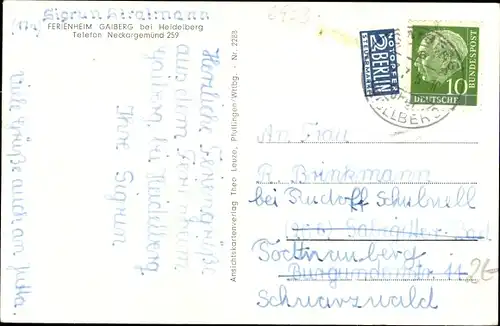 Sigrun
FERIENHEIM GAIBERG bei Heidelberg
Telefon Neckargemünd 259
Herzliche Feriengrüße
aus dem Ferienheim
Gaiberg bei Heidelberg
Ihre Sigrun
Viele Grüße auch an Jutta.
Ansichtskartenverlag Theo Leuze, Pfullingen-Wttbg. · Nr. 2283
NOTOPFER
2 BERLIN
STEUERMARKE
DEUTSCHE
BUNDESPOST
10
An Frau
R. Brinkmann
bei Rudolf Schubnell
Todtnauberg
Burgunderstr. 11
Schwarzwald
2€